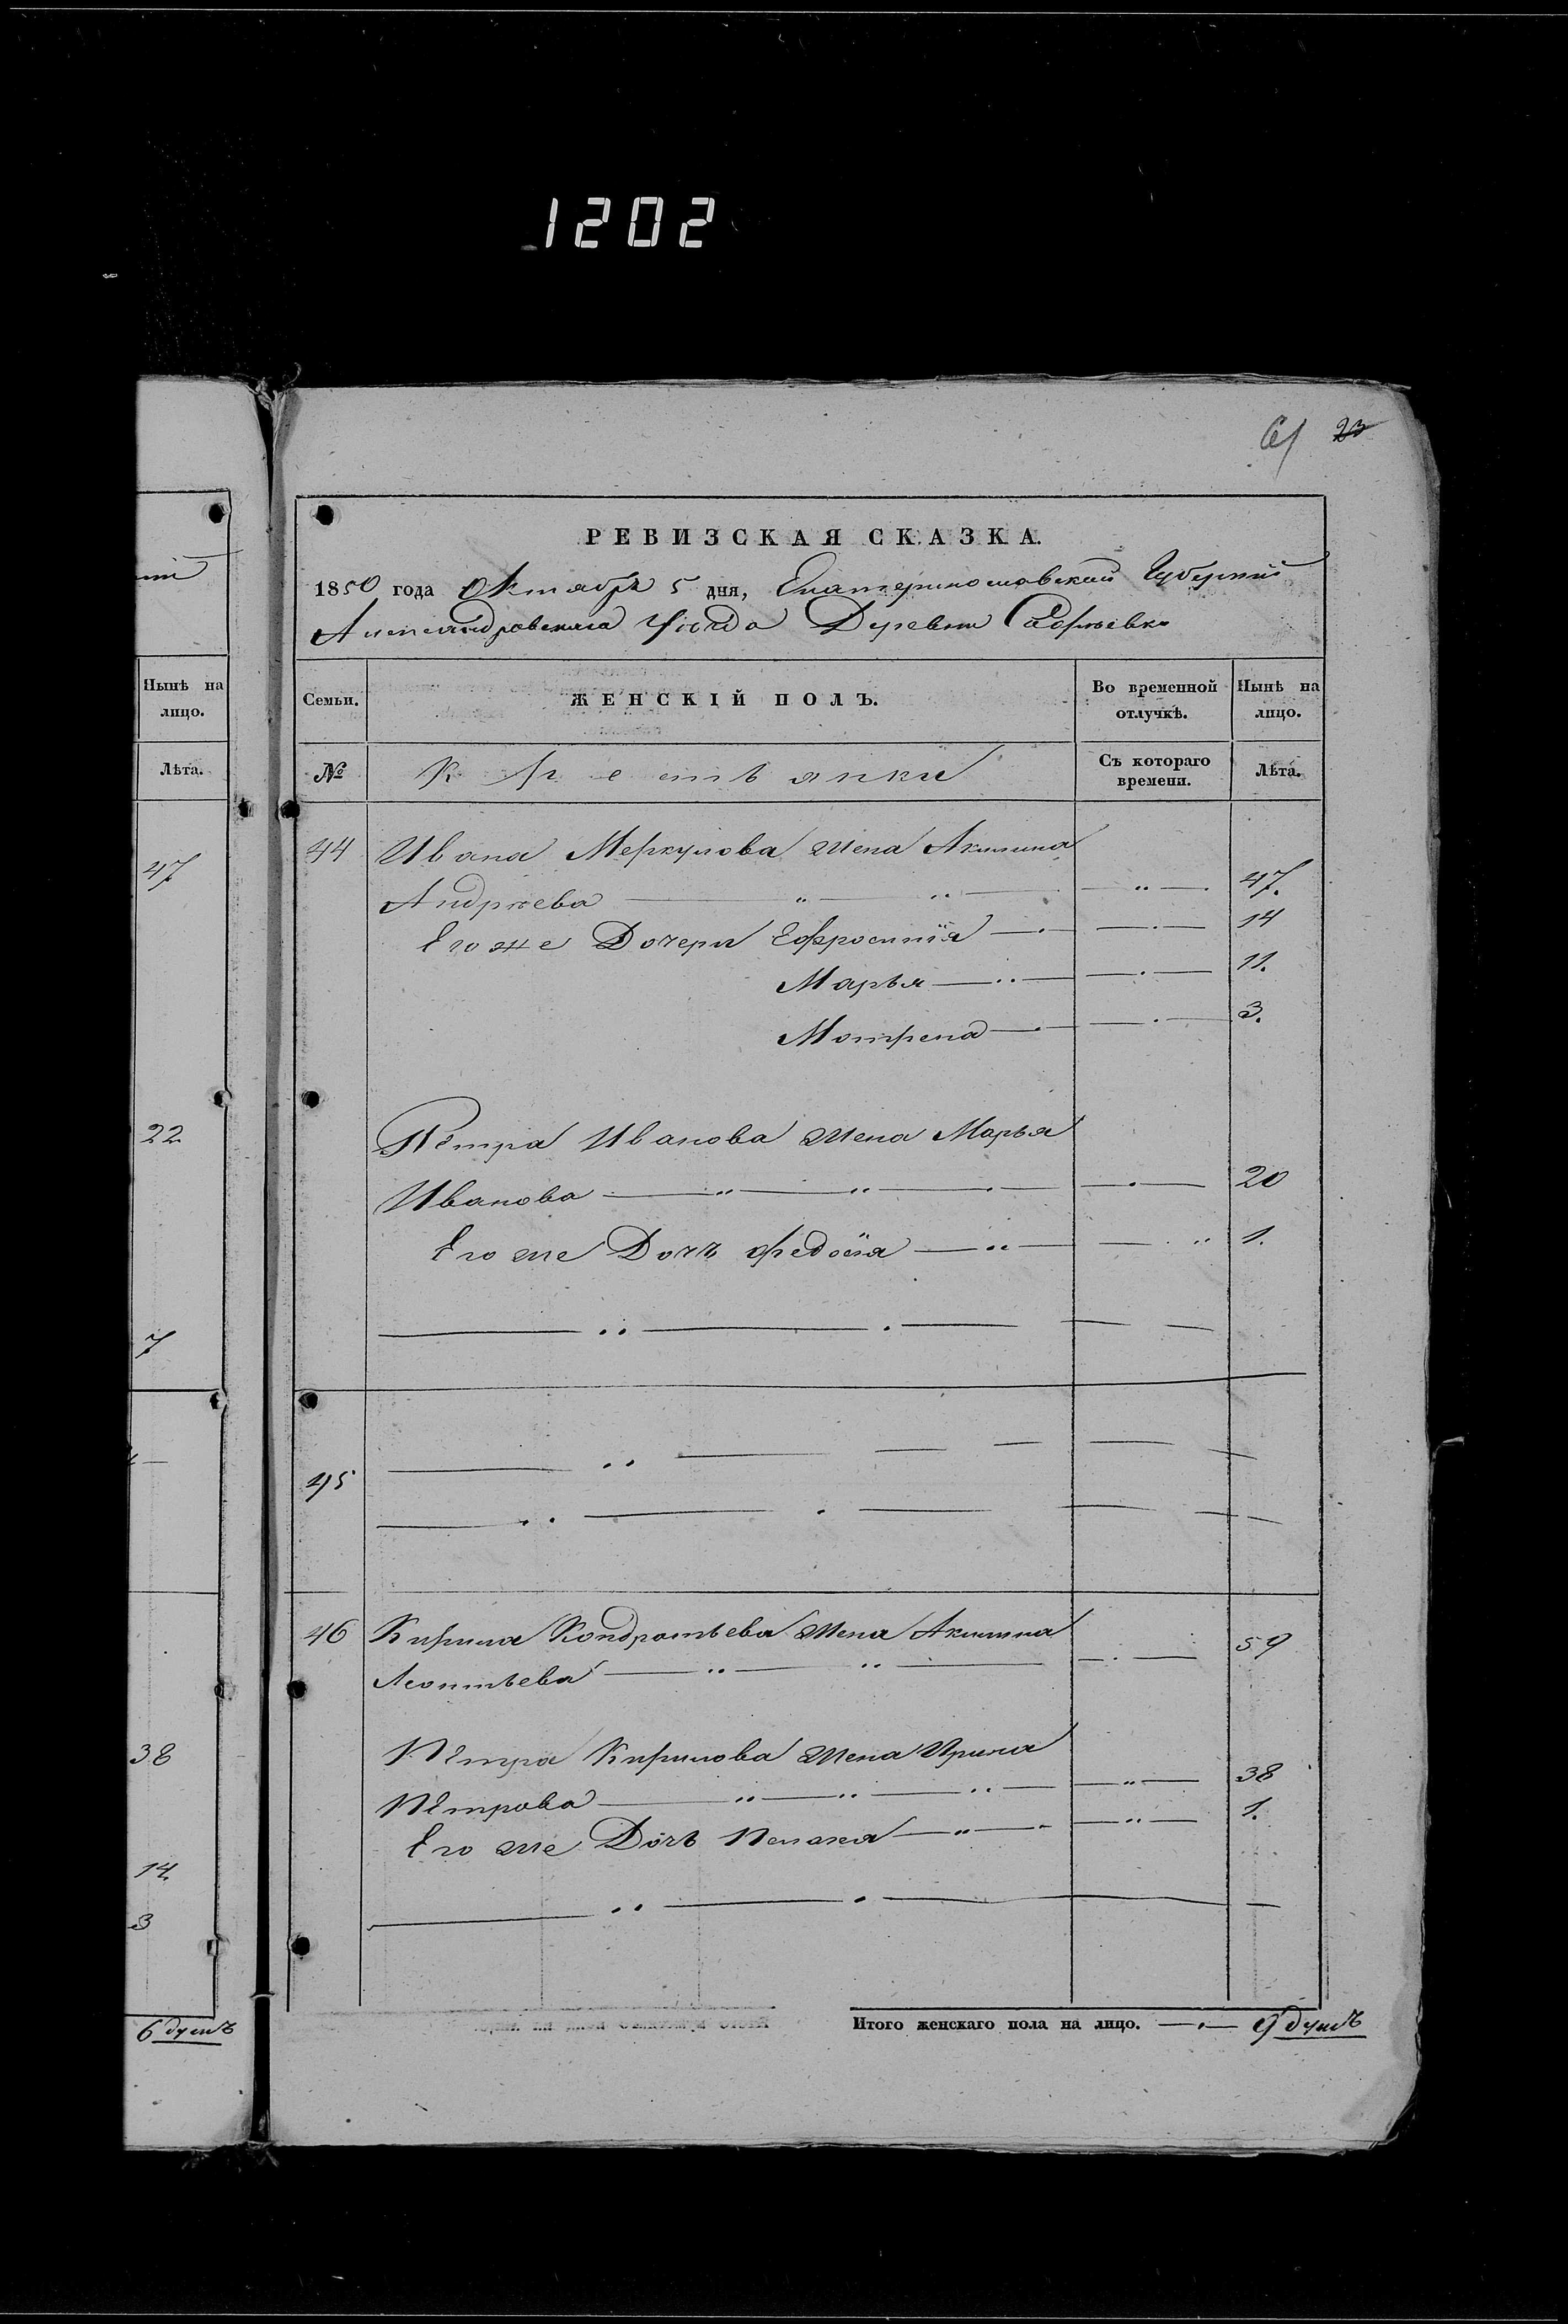 1202
61 23
РЕВИЗСКАЯ СКАЗКА.
1850 года Октября 5 дня, Екатеринославской Губернии
Александровскаго Уѣзда Деревни
Нынѣ на лицо.
Лѣта.
47
22
7
38
14.
3
6 душъ
Семьи. ЖЕНСКІЙ ПОЛЪ. Во временной отлучкѣ. Нынѣ на лицо.
№ Крестьянки Съ котораго времени. Лѣта.
44 Ивана Меркулова жена Акилина
Андрѣева 47.
Его же Дочери Ефросинія 14
Марья 11.
Мотрена 3.
Петра Иванова жена Марья
Иванова 20
Его же Дочь Федосія 1.
45
46 Кирила Кондратьева жена Акилина 59
Леонтьева
Петра Кирилова жена Ирина
Петрова 38
Его же Дочь Пелагея 1.
Итого женскаго пола на лицо. 9 душъ